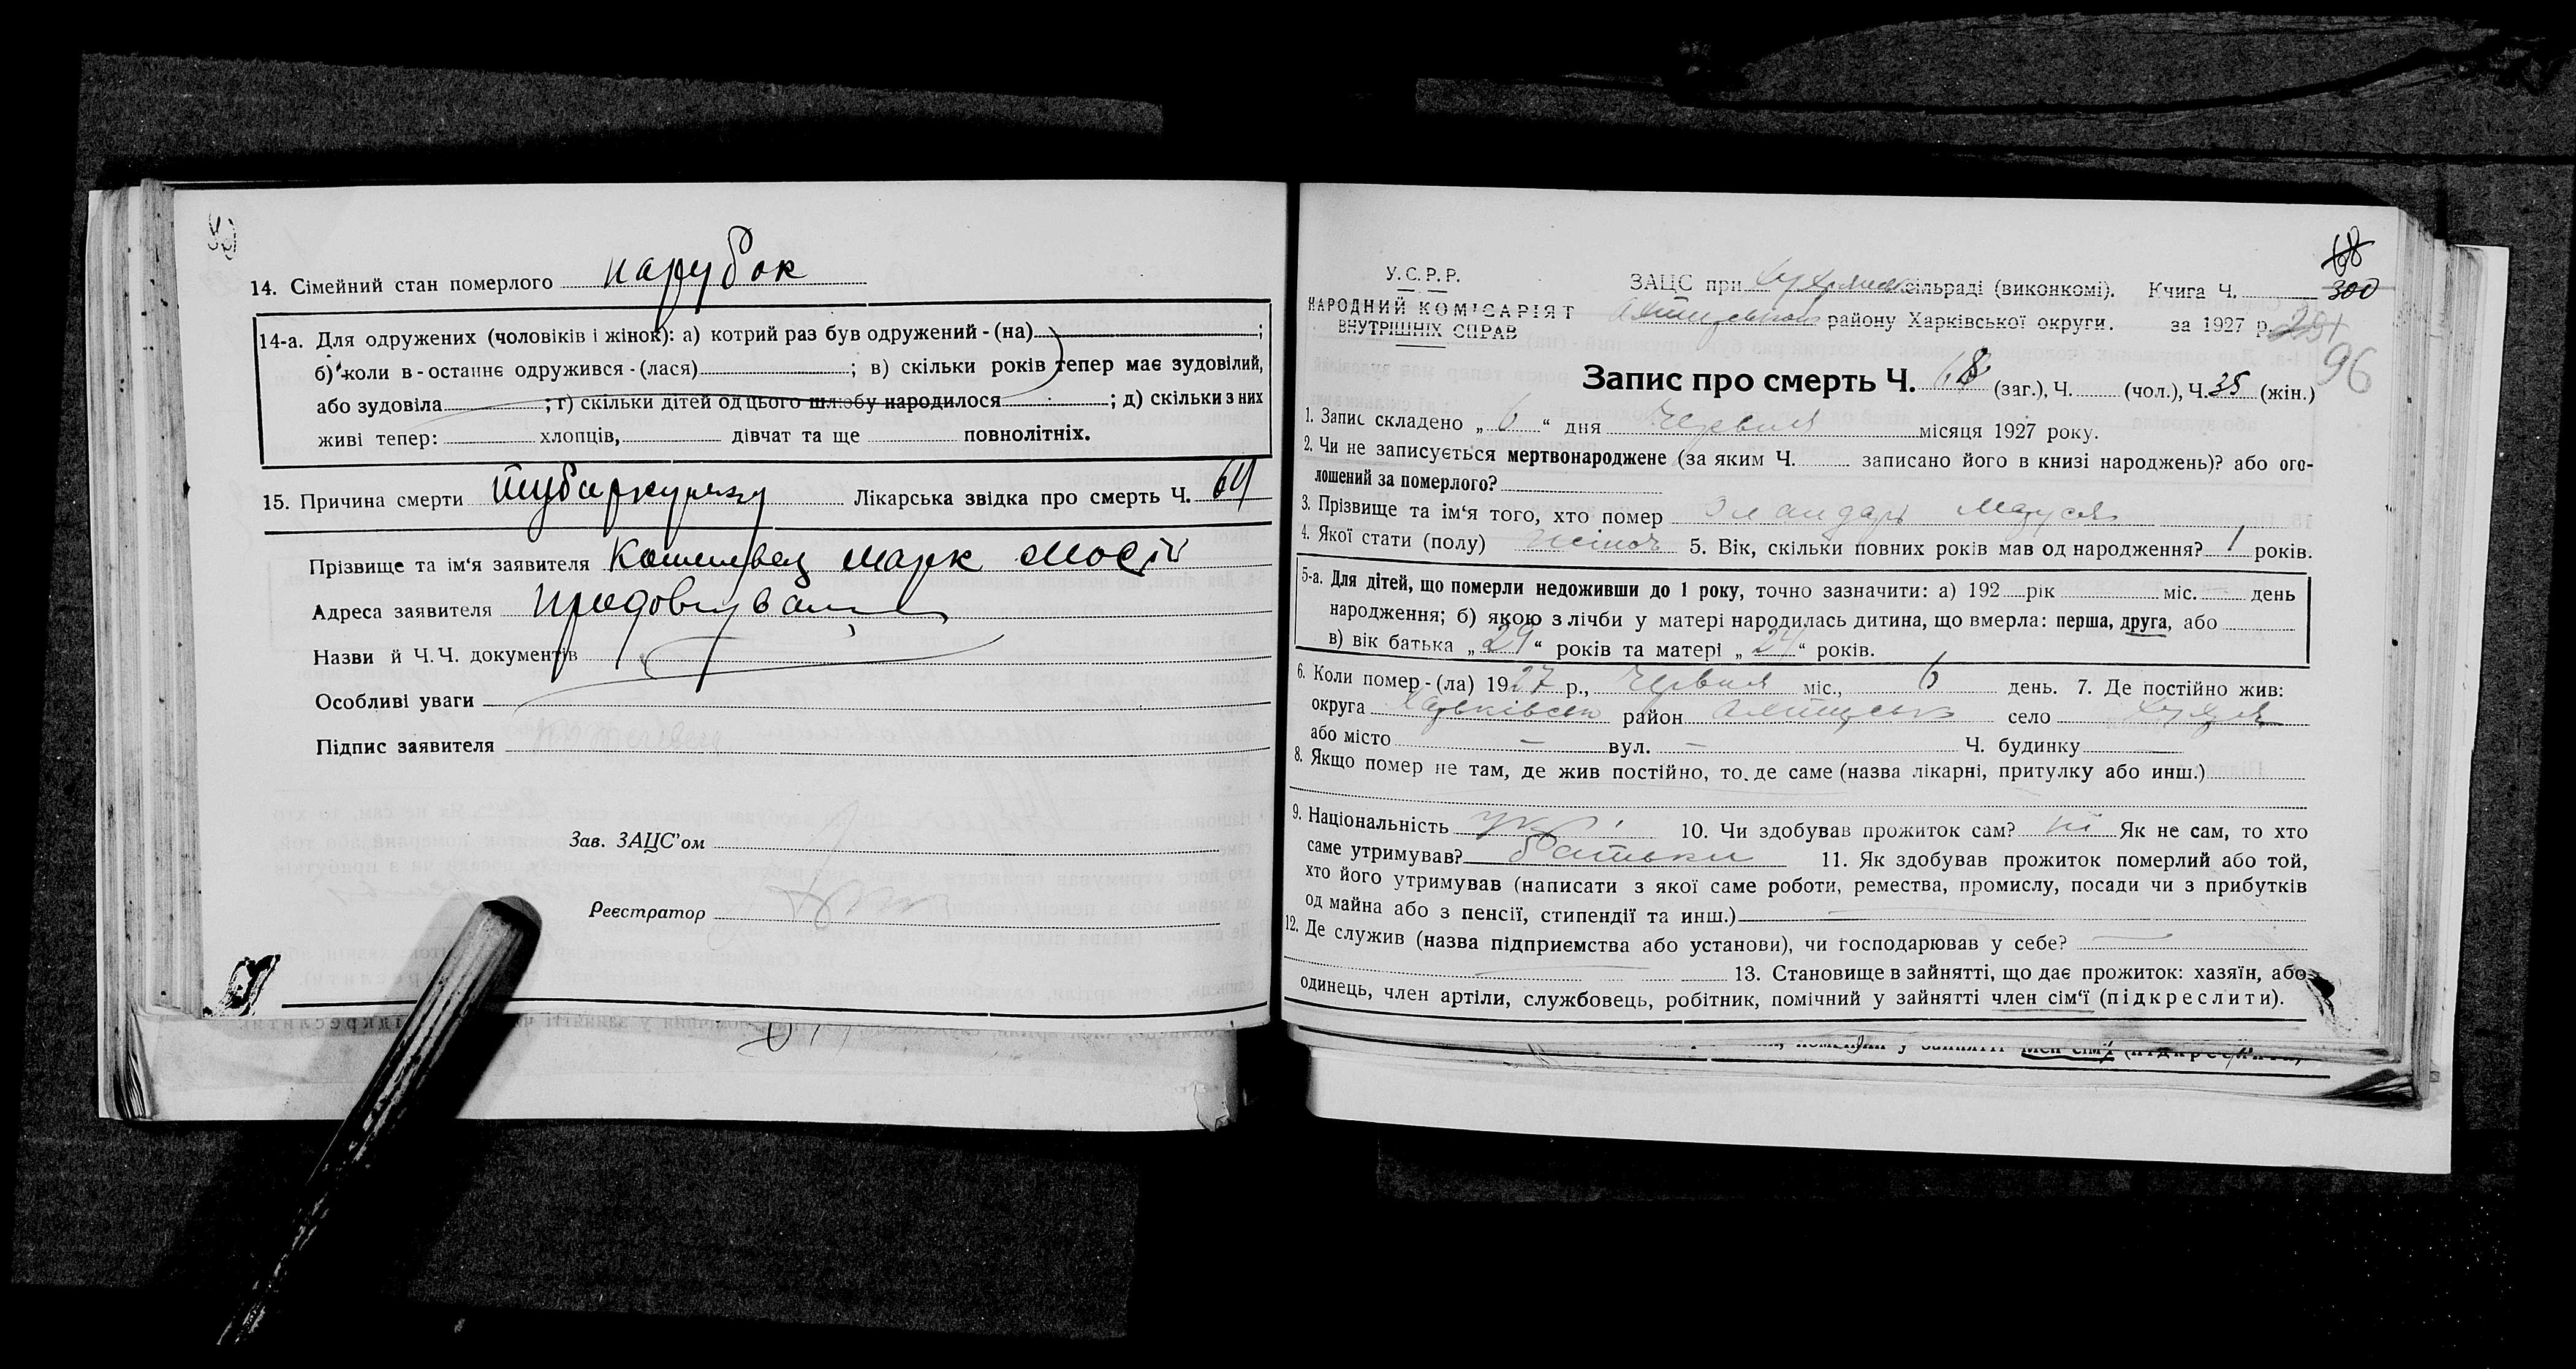 14. Сімейний стан померлого парубок
14-а. Для одружених (чоловіків і жінок): а) котрий раз був одружений-(на) ;
б) коли в-останнє одружився-(лася) ; в) скільки років тепер має зудовілий,
або зудовіла ; г) скільки дітей од цього шлюбу народилося ; д) скільки з них
живі тепер: хлопців, дівчат та ще повнолітніх.
15. Причина смерти Лікарська звідка про смерть Ч. 64
Прізвище та ім'я заявителя Марк
Адреса заявителя
Назви й Ч.Ч. документів
Особливі уваги
Підпис заявителя
Зав. ЗАЦС'ом
Реєстратор
68
300
У.С.Р.Р.
НАРОДНИЙ КОМІСАРІЯТ
ВНУТРІШНІХ СПРАВ
ЗАЦС при сільраді (виконкомі). Книга Ч.
району Харківської округи. за 1927 р.
96
Запис про смерть Ч. 68 (заг.), Ч. (чол.), Ч. 35 (жін.)
1. Запис складено „ 6 “ дня Червня місяця 1927 року.
2. Чи не записується мертвонароджене (за яким Ч. записано його в книзі народжень)? або ого-
лошений за померлого?
3. Прізвище та ім'я того, хто помер
4. Якої стати (полу) жіноч 5. Вік, скільки повних років мав од народження? 1 років.
5-а. Для дітей, що померли недоживши до 1 року, точно зазначити: а) 192 рік міс. день
народження; б) якою з лічби у матері народилась дитина, що вмерла: перша, друга, або
в) вік батька „ 29 “ років та матері „ 24 “ років.
6. Коли помер-(ла) 1927 р., Червня міс., 6 день. 7. Де постійно жив:
округа Харківськ район село
або місто — вул. — Ч. будинку —
8. Якщо помер не там, де жив постійно, то де саме (назва лікарні, притулку або инш.)
9. Національність укр 10. Чи здобував прожиток сам? ні Як не сам, то хто
саме утримував? батьки 11. Як здобував прожиток померлий або той,
хто його утримував (написати з якої саме роботи, ремества, промислу, посади чи з прибутків
од майна або з пенсії, стипендії та инш.)
12. Де служив (назва підприємства або установи), чи господарював у себе?
13. Становище в зайнятті, що дає прожиток: хазяїн, або
одинець, член артіли, службовець, робітник, помічний у зайнятті член сім'ї (підкреслити).